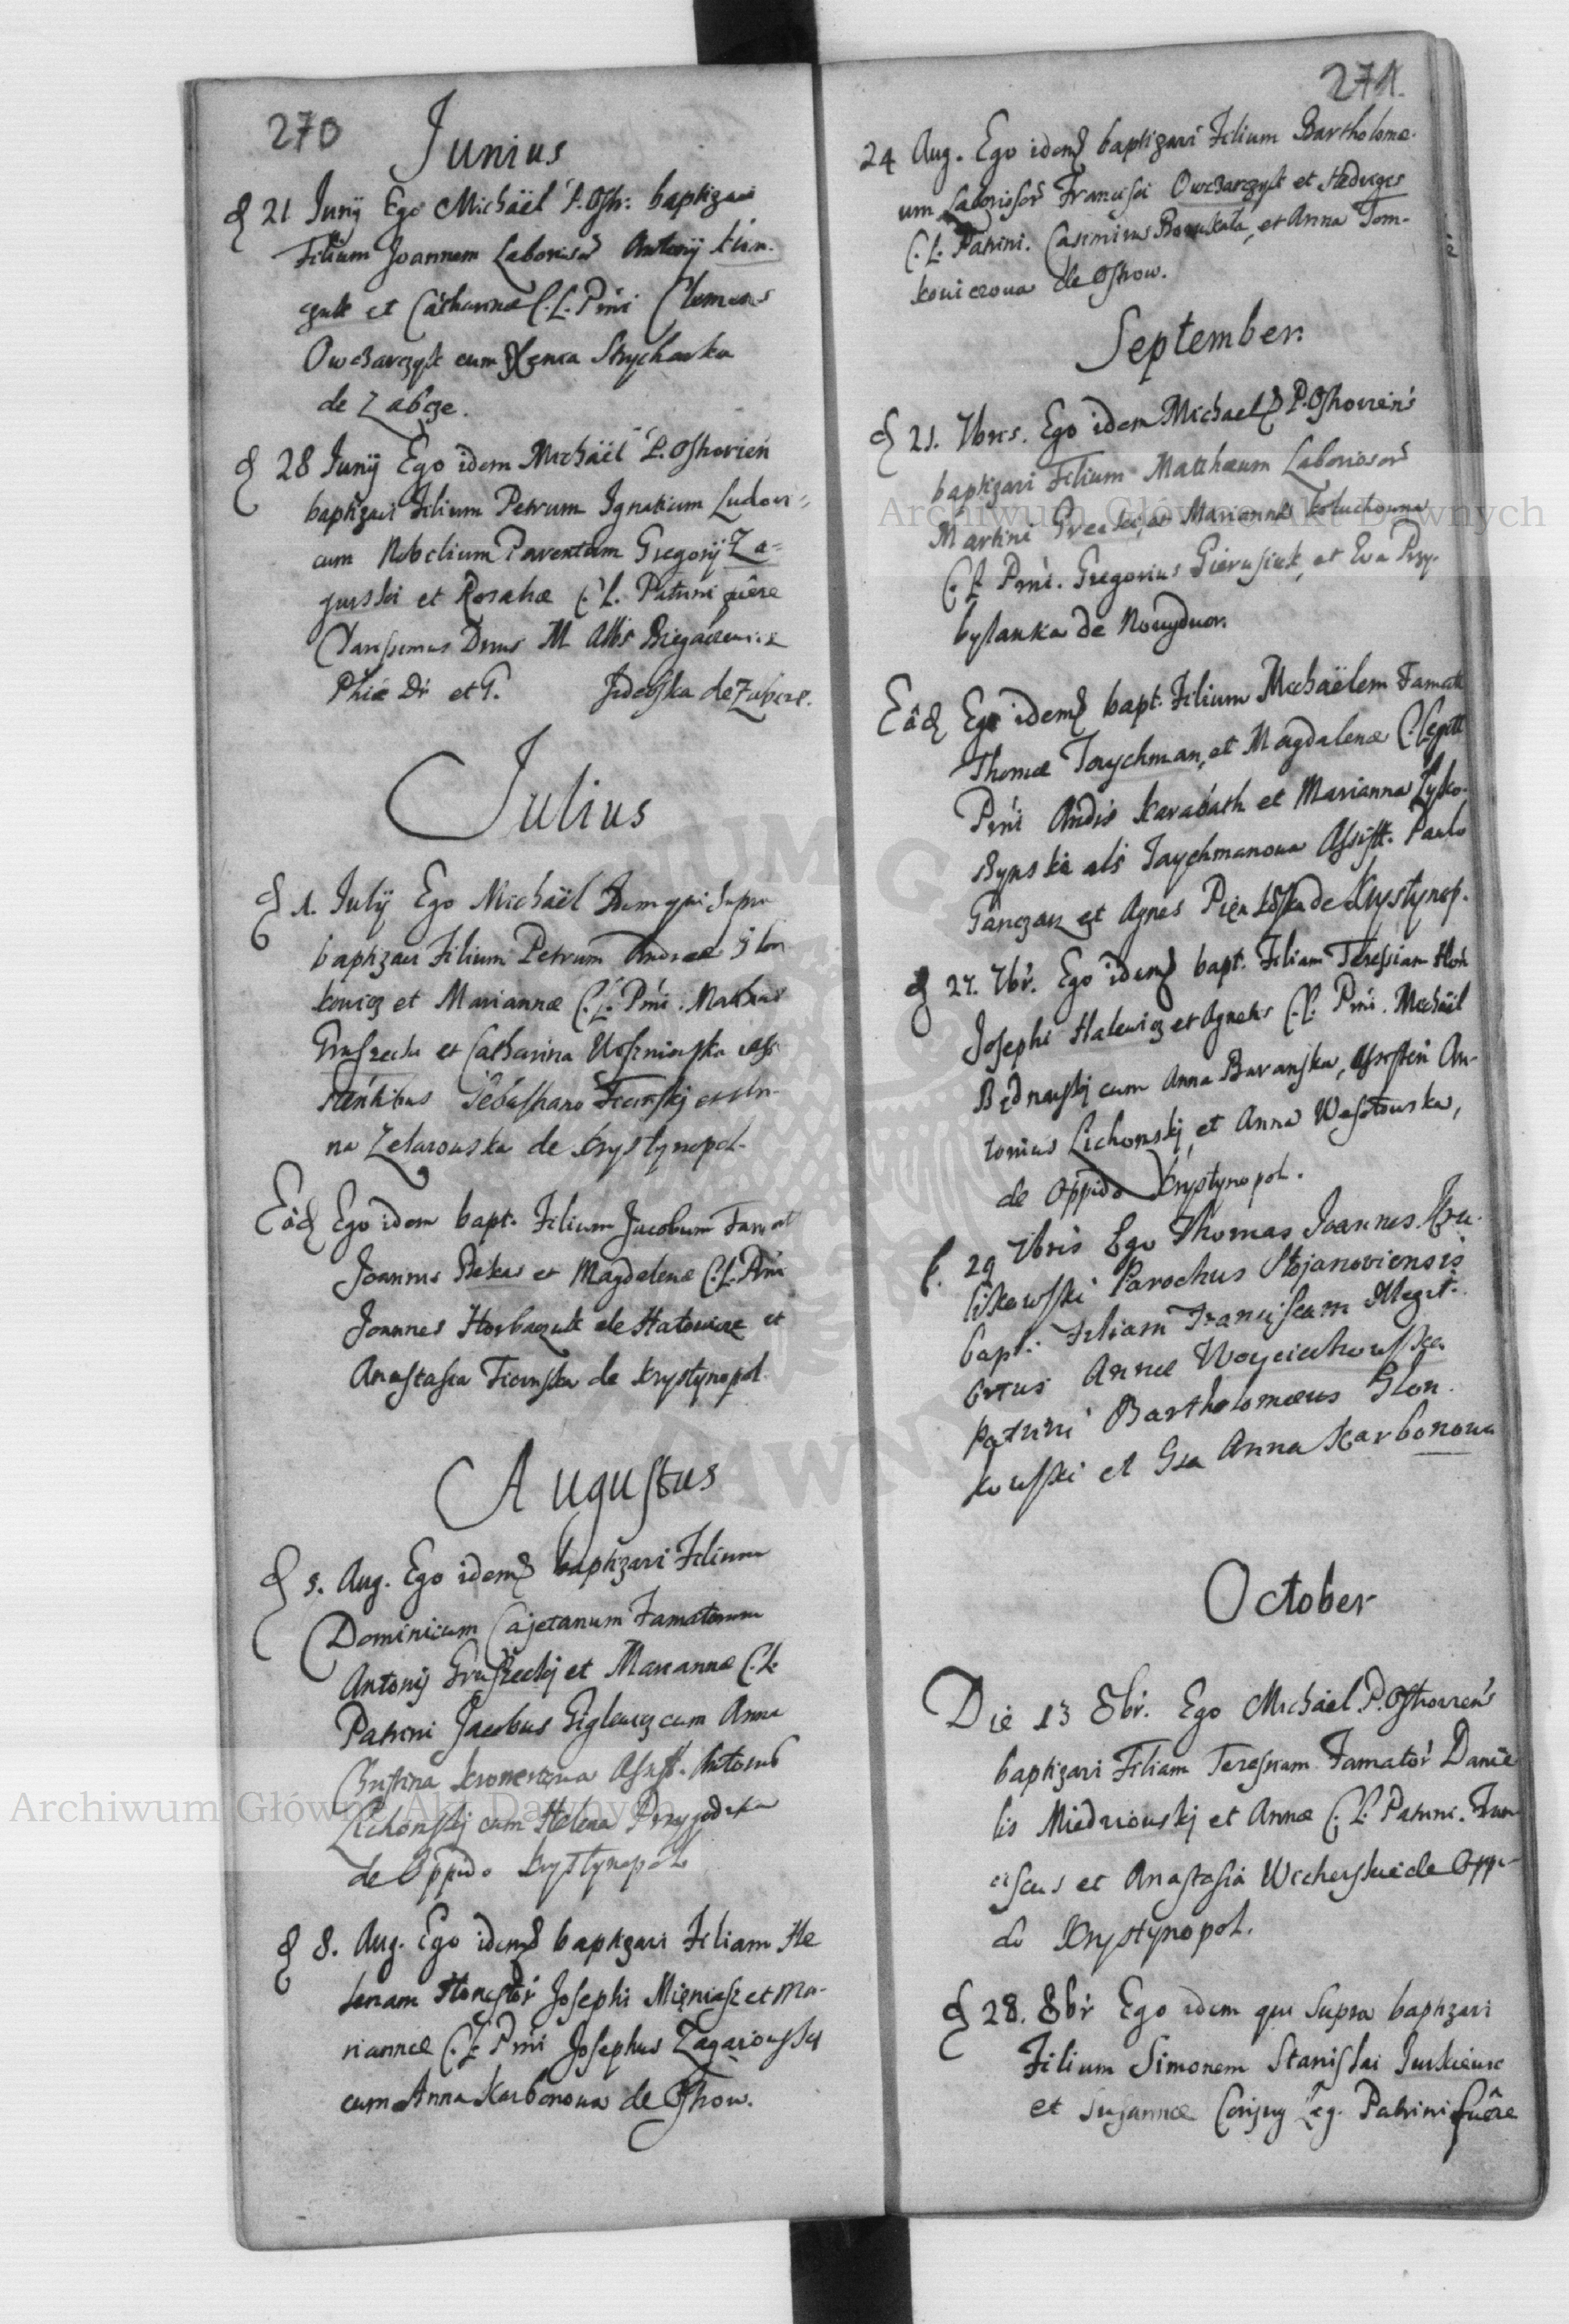 270
Junius
d 21 Junij Ego Michaël P. Ostr. baptizavi
Filium Joannem Laborios Antonij
et Catharinae C. L. Prni Clemens
Owczarczyk cum Strycharka
de Zabcze.
d 28 Junij Ego idem Michaël P. Ostrovien
baptizavi Filium Petrum Ignatium Ludovi=
cum Nobilium Parentum Gregorij Za=
gurski et Rosaliae C. L. Patrini fuêre
Clarissimus Dnus M. Albs
Phiae Dr et G. de Zabcze.
Julius
d 1. Julij Ego Michaël Idem qui supra
baptizavi Filium Petrum Andreae Slon
kowicz et Mariannae C. L. Prni. Mathias
Gruszecki et Catharina Uleszniowska assi
stentibus Sebastiano Ficinskj et An-
na Zelazowska de Krystynopol.
Eâd Ego idem bapt. Filium Jacobum Famat
Joannis Pekas et Magdalenae C. L. Prni
Joannes Horbaczuk de Hatowice et
Anastasia Ficinska de Krystynopol.
Augustus
d 5. Aug. Ego idem baptizavi Filium
Dominicum Cajetanum Famatorum
Antonij Gruszeckij et Mariannae C. L.
Patrini Jacobus Giglewicz cum Anna
Christina Kromerowa Assist. Antonius
Lichonskj cum Helena Przygodzka
de Oppido Krystynopol
d 8. Aug. Ego idem baptizavi Filiam He
lenam Honestor Josephi Mięniasz et Ma-
riannae C. L. Prni Josephus Zagarowskj
cum Anna Karbonowa de Ostrow.
271.
24 Aug. Ego idem baptizavi Filium Bartholomae-
um Laboriosor Francisci Owczarczyk et Hedvigis
C. L. Patrini. Casimirus et Anna Tom-
kowiczowa de Ostrow.
September.
d 21. 7bris. Ego idem Michael P. Ostroviens
baptizavi Filium Matthaeum Laboriosor
Martini et Mariannae Koluchowna
C. L. Prni. Gregorius Gierusiuk, et Eva Przy-
bylanka de Nowydwor.
Eâd Ego idem bapt. Filium Michaëlem Famat
Thomae Taychman, et Magdalenae C. Legitt
Prni Andis Karabath et Marianna Lysko-
als Taychmanowa Assist. Paulo
Ganczarz et Agnes de Krystynop.
d 27. 7br. Ego idem bapt. Filiam Teressiam Hon
Josephi Halewicz et Agnetis C. L. Prni. Michaël
Bednarskj cum Anna Baranska, Assisten An-
tonius Lichonskj, et Anna Wesołowska,
de Oppido Krystynopol.
d. 29 7bris Ego Thomas Joannes Kru-
likowski Parochus Stojanoviensis
bapt. Filiam Franciscam Illegit.
ortus Annae Woyciechowska
patrini Bartholomaeus Slon
kowski et Gsa Anna Karbonowa
October
Die 13 8br. Ego Michael P. Ostroviens
baptizavi Filiam Teressiam Famator Danie
lis Miedziowskj et Annae C. L. Patrini. Fran
ciscus et Anastasia Wicherskie de Oppi-
do Krystynopol.
d 28. 8br Ego idem qui supra baptizavi
Filium Simonem Stanislai Jurkiewic
et Susannae Conjug Leg. Patrini fuêre
Archiwum Główne Akt Dawnych
Archiwum Główne Akt Dawnych